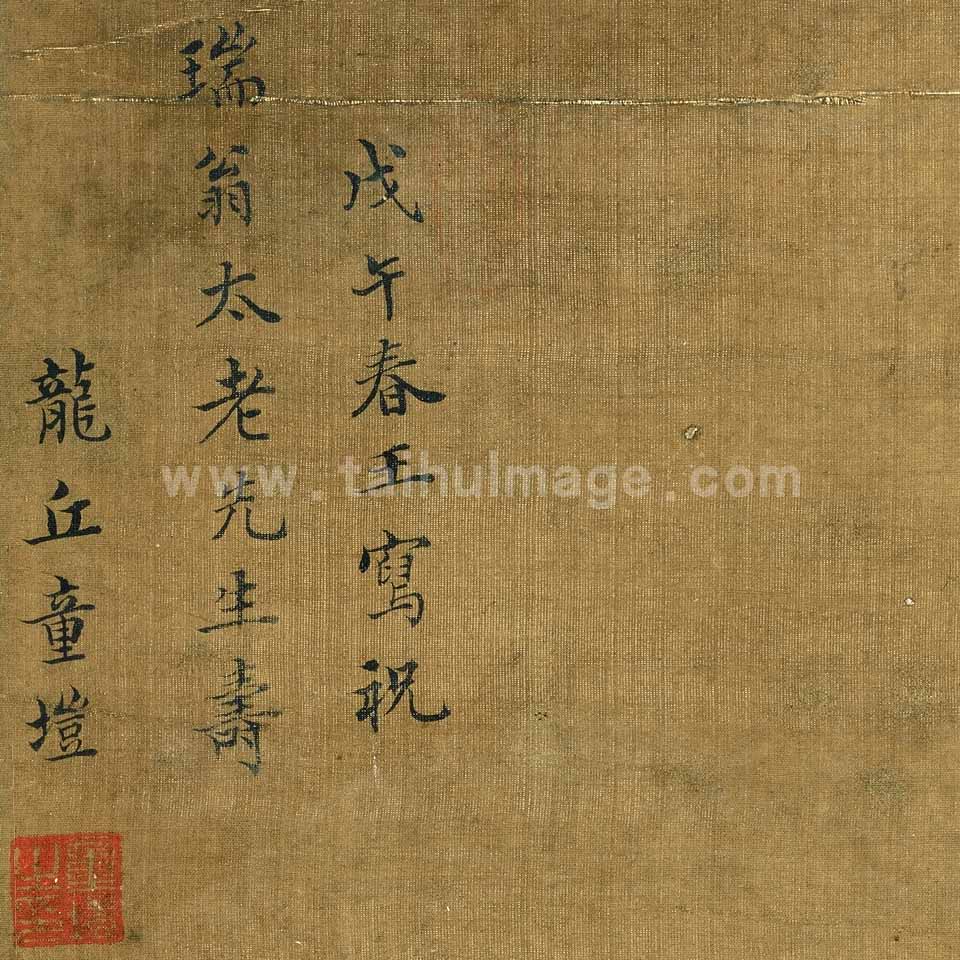 戊午春王寫祝
瑞翁太老先生壽
龍丘童塏
www.taihuImage.com